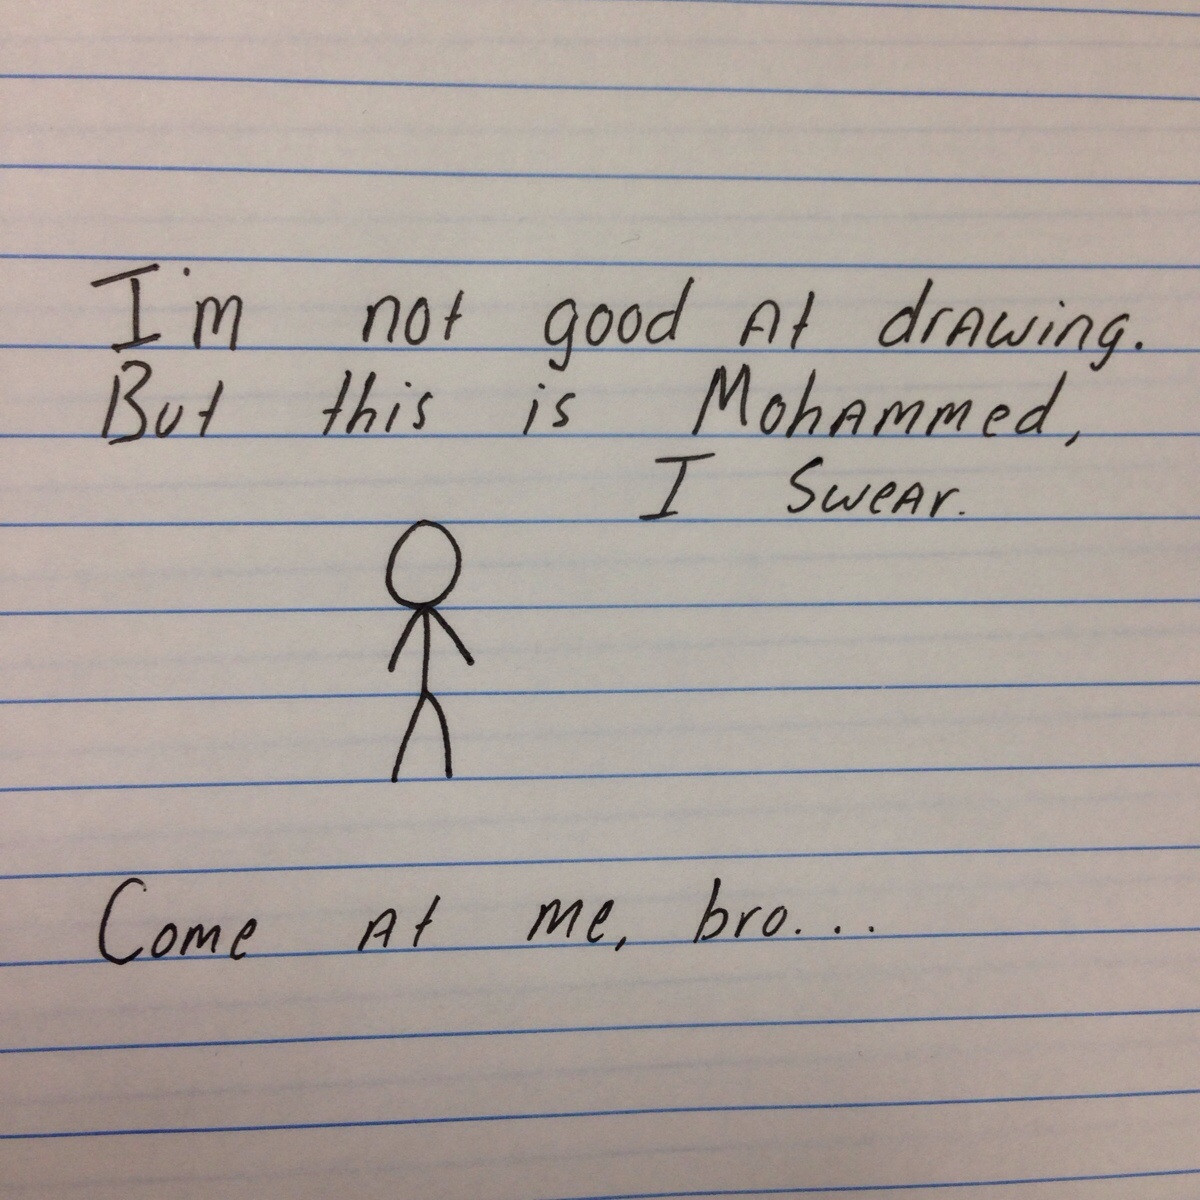 I'm not good at drawing.
But this is Mohammed,
I swear.
Come at me, bro...